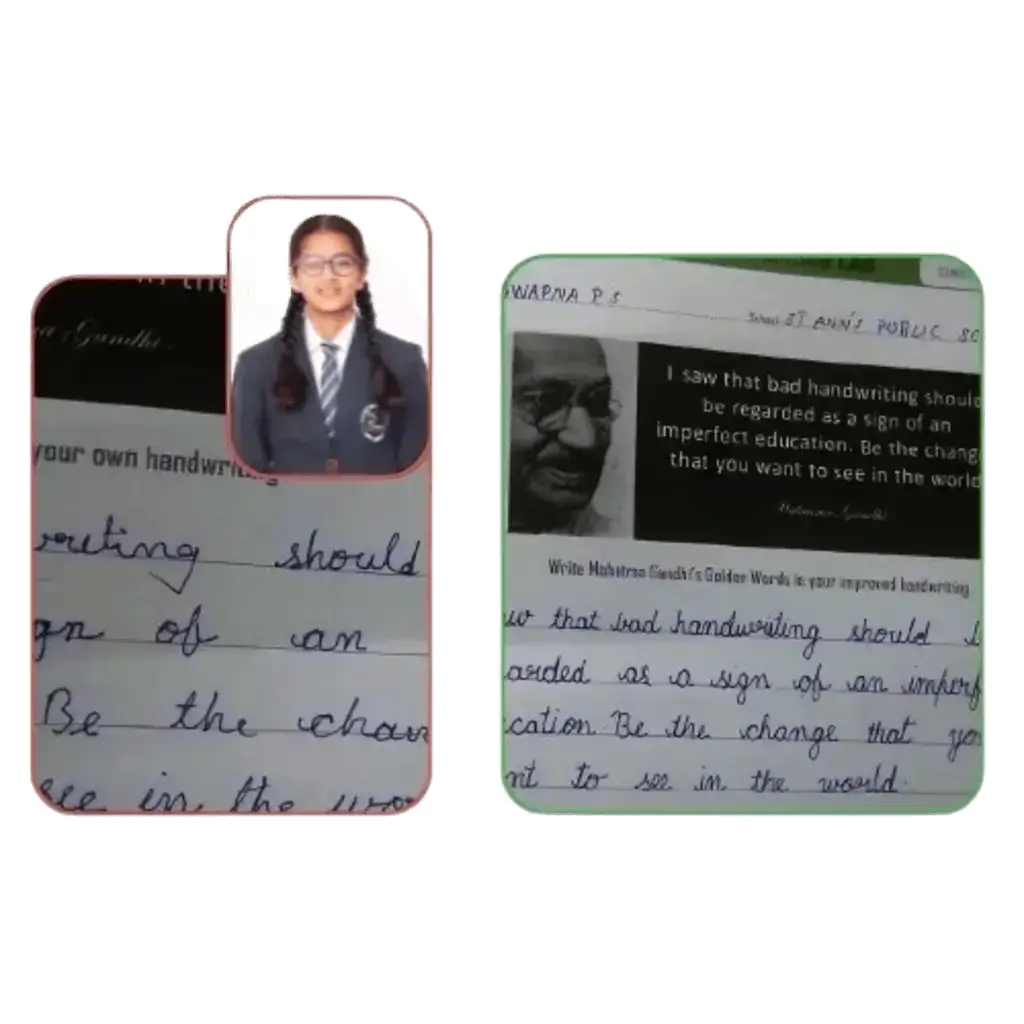 Gandhi
your own handwriting
writing should
gn of an
Be the chan
see in the wor
SWAPNA P S
School ST ANN'S PUBLIC SC
I saw that bad handwriting should
be regarded as a sign of an
imperfect education. Be the chang
that you want to see in the world
Mahatma Gandhi
Write Mahatma Gandhi's Golden Words in your improved handwriting
w that bad handwriting should b
arded as a sign of an imperf
cation. Be the change that you
nt to see in the world.